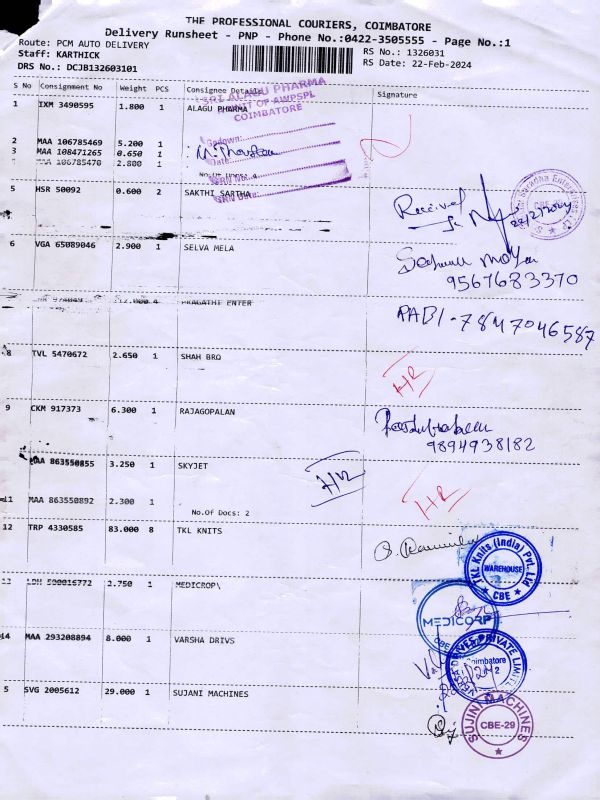 THE PROFESSIONAL COURIERS, COIMBATORE
Delivery Runsheet - PNP - Phone No.:0422-3505555 - Page No.:1
Route: PCM AUTO DELIVERY
RS No.: 1326031
Staff: KARTHICK
RS Date: 22-Feb-2024
DRS No.: DCJB132603101
S No Consignment No Weight PCS Consignee Details Signature
1 IXM 3490595 1.800 1 ALAGU PHARMA
SRI ALAGU PHARMA
UNIT OF AWPSPL
COIMBATORE
Godown:
Date
2 MAA 106785469 5.200 1
3 MAA 108471265 0.650 1
MAA 106785470 2.800 1
No.Of Docs: 4
GRN No.
GRN Date:
5 HSR 50092 0.600 2 SAKTHI SARTHA
Received
22/2/2024
CBE
6 VGA 65089046 2.900 1 SELVA MELA
9567683370
4 PRAGATHI ENTER
PABI - 7847046587
8 TVL 5470672 2.650 1 SHAH BRO
9 CKM 917373 6.300 1 RAJAGOPALAN
9894938182
MAA 863550855 3.250 1 SKYJET
11 MAA 863550892 2.300 1
No.Of Docs: 2
12 TRP 4330585 83.000 8 TKL KNITS
TKL Knits (India) Pvt. Ltd
WAREHOUSE
CBE
13 LDH 500016772 2.750 1 MEDICROP\
MEDICORP
CBE
14 MAA 293208894 8.000 1 VARSHA DRIVS
PRIVATE LIMITED
Coimbatore
5 SVG 2005612 29.000 1 SUJANI MACHINES
SUJINI MACHINES
CBE-29